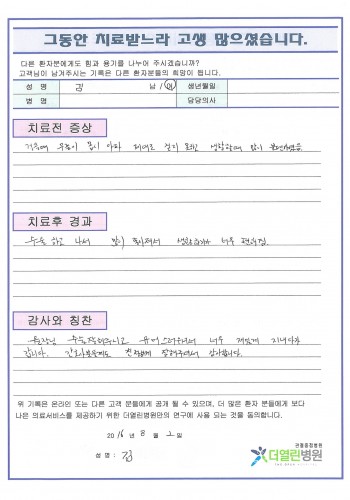 그동안 치료받느라 고생 많으셨습니다.
다른 환자분에게도 힘과 용기를 나누어 주시겠습니까?
고객님이 남겨주시는 기록은 다른 환자분들의 희망이 됩니다.
성 명 김 남 / 여 생년월일
병 명 담당의사
치료전 증상
무릎이 많이 아파 제대로 걷지 못하 생활하는데 많이
치료후 경과
수술 하고 나서 많이 좋아져서 생활하기가 너무 편해짐.
감사와 칭찬
원장님 수술 잘해주시고 너무 재밌게 지내다가
갑니다. 간호사분들도 친절하게 잘해주셔서 감사합니다.
위 기록은 온라인 또는 다른 고객 분들에게 공개 될 수 있으며, 더 많은 환자 분들에게 보다
나은 의료서비스를 제공하기 위한 더열린병원만의 연구에 사용 되는 것을 동의합니다.
2016 년 8 월 2 일
성 명 : 김
관절중점병원
더열린병원
THE OPEN HOSPITAL